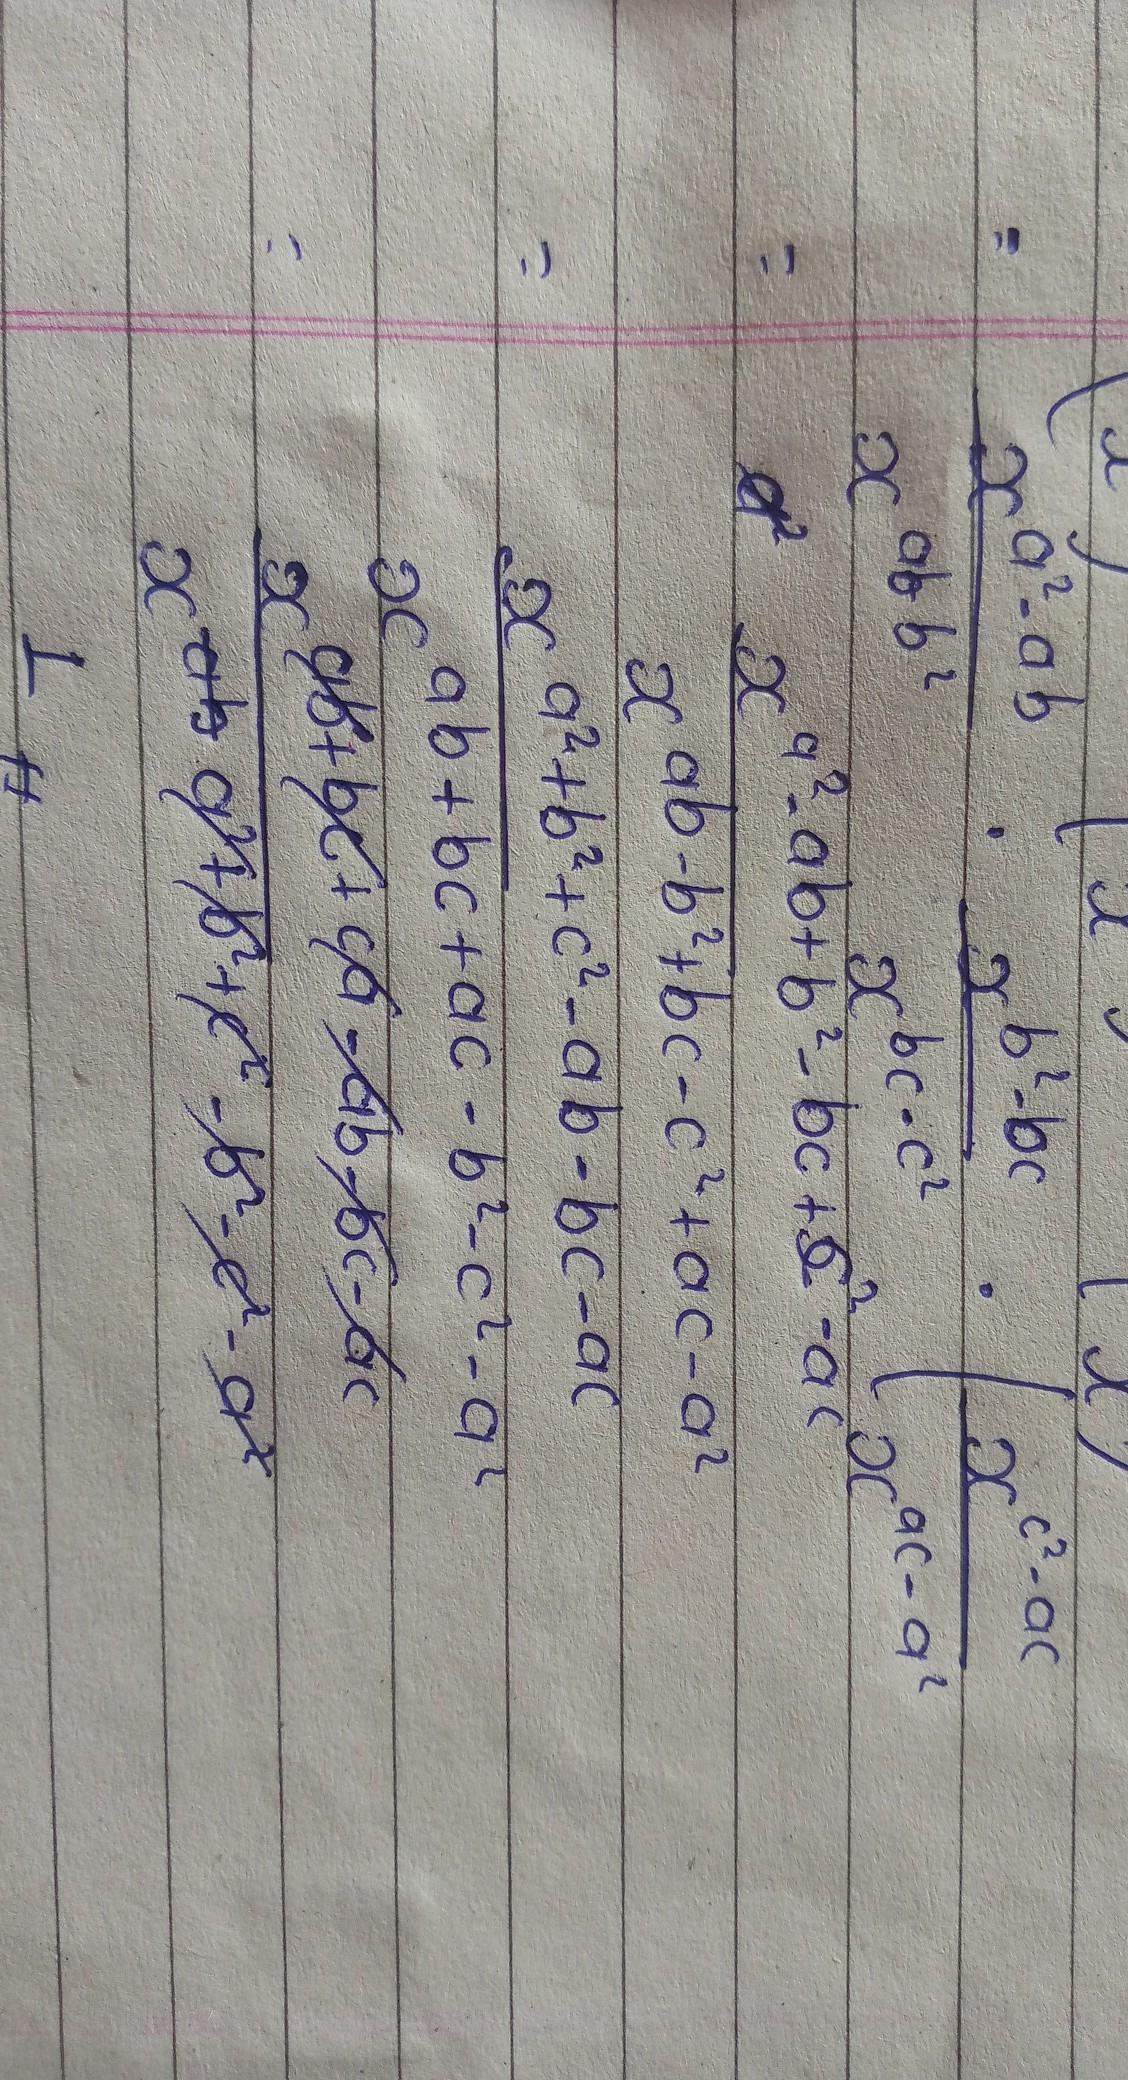 (x) (x (x)
= x^(a²-ab) / x^(ab-b²) · x^(b²-bc) / x^(bc-c²) · (x^(c²-ac) / x^(ac-a²)
= x^(a²-ab+b²-bc+c²-ac)
x^(ab-b²+bc-c²+ac-a²)
= x^(a²+b²+c²-ab-bc-ac)
x^(ab+bc+ac-b²-c²-a²)
= x^(ab+bc+ca-ab-bc-ac)
x^(a²+b²+c²-b²-c²-a²)
1 #